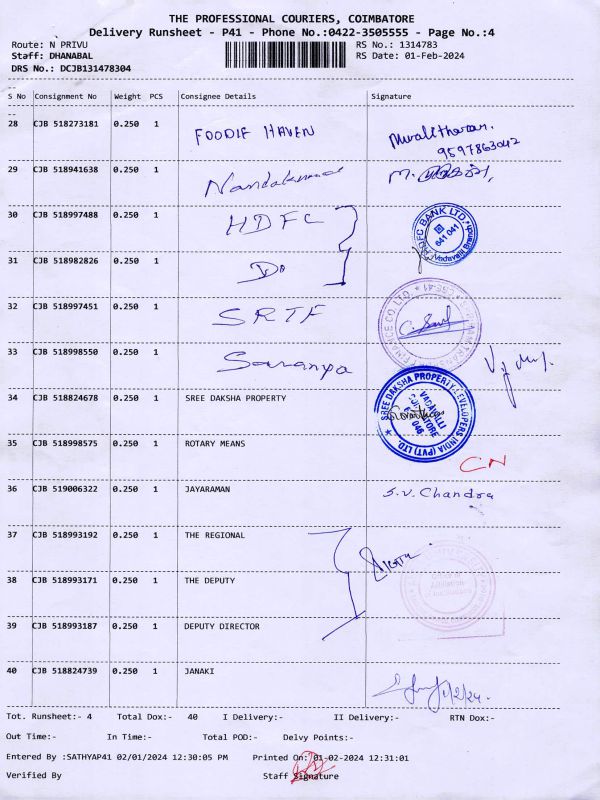 THE PROFESSIONAL COURIERS, COIMBATORE
Delivery Runsheet - P41 - Phone No.:0422-3505555 - Page No.:4
Route: N PRIVU RS No.: 1314783
Staff: DHANABAL RS Date: 01-Feb-2024
DRS No.: DCJB131478304
S No Consignment No Weight PCS Consignee Details Signature
28 CJB 518273181 0.250 1 FOODIE HAVEN Muralitharan.
9597863042
29 CJB 518941638 0.250 1 Nandakumar M.
30 CJB 518997488 0.250 1 HDFC HDFC BANK LTD. 641 041 Vadavalli Branch
31 CJB 518982826 0.250 1 Do
32 CJB 518997451 0.250 1 SRTF FINANCE CO. LTD. CBE-41
33 CJB 518998550 0.250 1 Saranya
34 CJB 518824678 0.250 1 SREE DAKSHA PROPERTY SREE DAKSHA PROPERTY DEVELOPERS INDIA (PVT) LTD VADAVALLI COIMBATORE
35 CJB 518998575 0.250 1 ROTARY MEANS CN
36 CJB 519006322 0.250 1 JAYARAMAN S.V. Chandra
37 CJB 518993192 0.250 1 THE REGIONAL
38 CJB 518993171 0.250 1 THE DEPUTY
39 CJB 518993187 0.250 1 DEPUTY DIRECTOR
40 CJB 518824739 0.250 1 JANAKI 1/2/24.
Tot. Runsheet:- 4 Total Dox:- 40 I Delivery:- II Delivery:- RTN Dox:-
Out Time:- In Time:- Total POD:- Delvy Points:-
Entered By :SATHYAP41 02/01/2024 12:30:05 PM Printed On:01-02-2024 12:31:01
Verified By Staff Signature